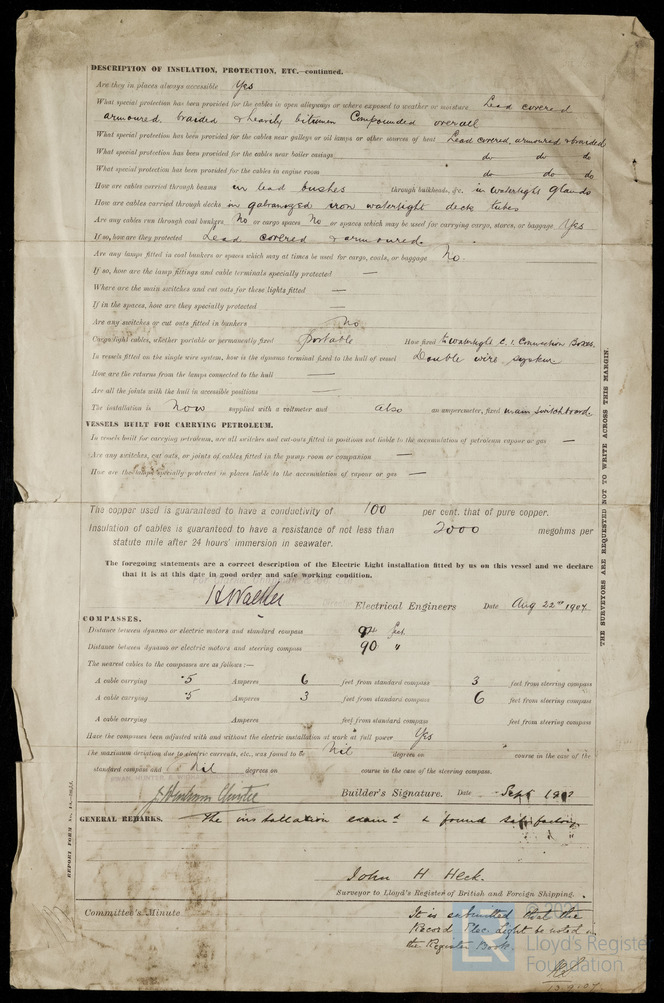 DESCRIPTION OF INSULATION, PROTECTION, ETC.—continued.
Are they in places always accessible Yes
What special protection has been provided for the cables in open alleyways or where exposed to weather or moisture Lead covered
armoured, braided & heavily bitumen Compounded overall
What special protection has been provided for the cables near galleys or oil lamps or other sources of heat Lead covered, armoured & braided
What special protection has been provided for the cables near boiler casings do do do
What special protection has been provided for the cables in engine room do do do
How are cables carried through beams in lead bushes through bulkheads, &c. in watertight glands
How are cables carried through decks in galvanized iron watertight deck tubes
Are any cables run through coal bunkers No or cargo spaces No or spaces which may be used for carrying cargo, stores, or baggage Yes
If so, how are they protected Lead covered & armoured.
Are any lamps fitted in coal bunkers or spaces which may at times be used for cargo, coals, or baggage No.
If so, how are the lamp fittings and cable terminals specially protected —
Where are the main switches and cut outs for these lights fitted —
If in the spaces, how are they specially protected —
Are any switches or cut outs fitted in bunkers No
Cargo light cables, whether portable or permanently fixed portable How fixed to watertight C.I. Connection Boxes.
In vessels fitted on the single wire system, how is the dynamo terminal fixed to the hull of vessel Double wire system
How are the returns from the lamps connected to the hull —
Are all the joints with the hull in accessible positions —
The installation is Now supplied with a voltmeter and also an amperemeter, fixed main switchboard.
VESSELS BUILT FOR CARRYING PETROLEUM.
In vessels built for carrying petroleum, are all switches and cut outs fitted in positions not liable to the accumulation of petroleum vapour or gas —
Are any switches, cut outs, or joints of cables fitted in the pump room or companion —
How are the lamps specially protected in places liable to the accumulation of vapour or gas —
The copper used is guaranteed to have a conductivity of 100 per cent. that of pure copper.
Insulation of cables is guaranteed to have a resistance of not less than 2000 megohms per
statute mile after 24 hours' immersion in seawater.
The foregoing statements are a correct description of the Electric Light installation fitted by us on this vessel and we declare
that it is at this date in good order and safe working condition.
Electrical Engineers Date Aug 22nd 1907.
COMPASSES.
Distance between dynamo or electric motors and standard compass 94 feet
Distance between dynamo or electric motors and steering compass 90 "
The nearest cables to the compasses are as follows:—
A cable carrying .5 Amperes 6 feet from standard compass 3 feet from steering compass
A cable carrying .5 Amperes 3 feet from standard compass 6 feet from steering compass
A cable carrying Amperes feet from standard compass feet from steering compass
Have the compasses been adjusted with and without the electric installation at work at full power Yes
The maximum deviation due to electric currents, etc., was found to be Nil degrees on course in the case of the
standard compass and Nil degrees on course in the case of the steering compass.
Builder's Signature. Date Sept 1907
GENERAL REMARKS. The installation exam'd & found satisfactory.
John H Heck.
Surveyor to Lloyd's Register of British and Foreign Shipping.
Committee's Minute
It is submitted that the
Record Elec. Light be noted in
the Register Book.
13.9.07.
THE SURVEYORS ARE REQUESTED NOT TO WRITE ACROSS THIS MARGIN.
Lloyd's Register
Foundation
LR